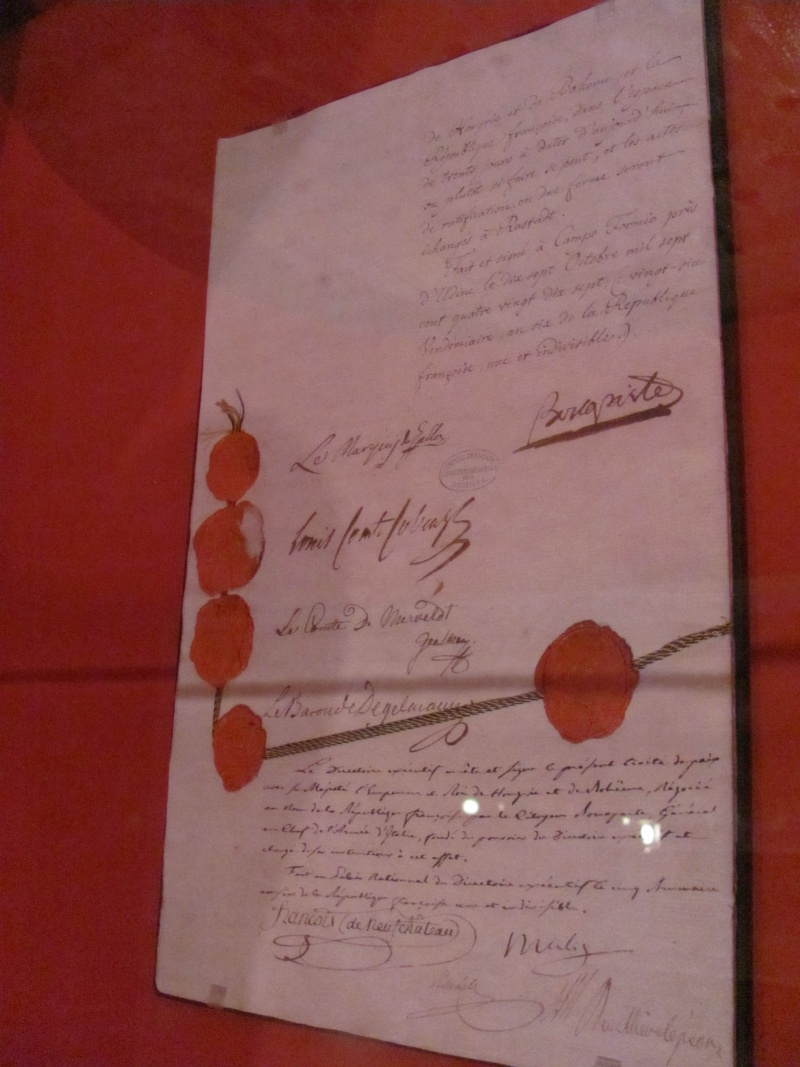 de Hongrie et de Bohême, et la
République françoise, dans l'espace
de trente jours à dater d'aujourd'huy,
ou plutôt si faire se peut, et les actes
de ratification en due forme seront
échangés à Rastadt.
Fait et signé à Campo Formio près
d'Udine le dix sept Octobre mil sept
cent quatre vingt dix sept, (vingt-six
Vendemiaire an six de la Republique
françoise, une et indivisible.)
Bonaparte
Le Marquis de Gallo
Louis Comte Cobenzl
Le Comte De Merveldt
Le Baron de Degelmann
Le Directoire exécutif arrête et signe le présent traité de paix
avec sa Majesté l'Empereur et Roi de Hongrie et de Bohême, Négocié
au Nom de la République française par le Citoyen Bonaparte, Général
en Chef de l'Armée d'Italie, fondé de pouvoirs du Directoire exécutif et
chargé de ses instructions à cet effet.
Fait au Palais National du Directoire exécutif le cinq Brumaire
an six de la République française une et indivisible.
François (de Neufchâteau)
Merlin